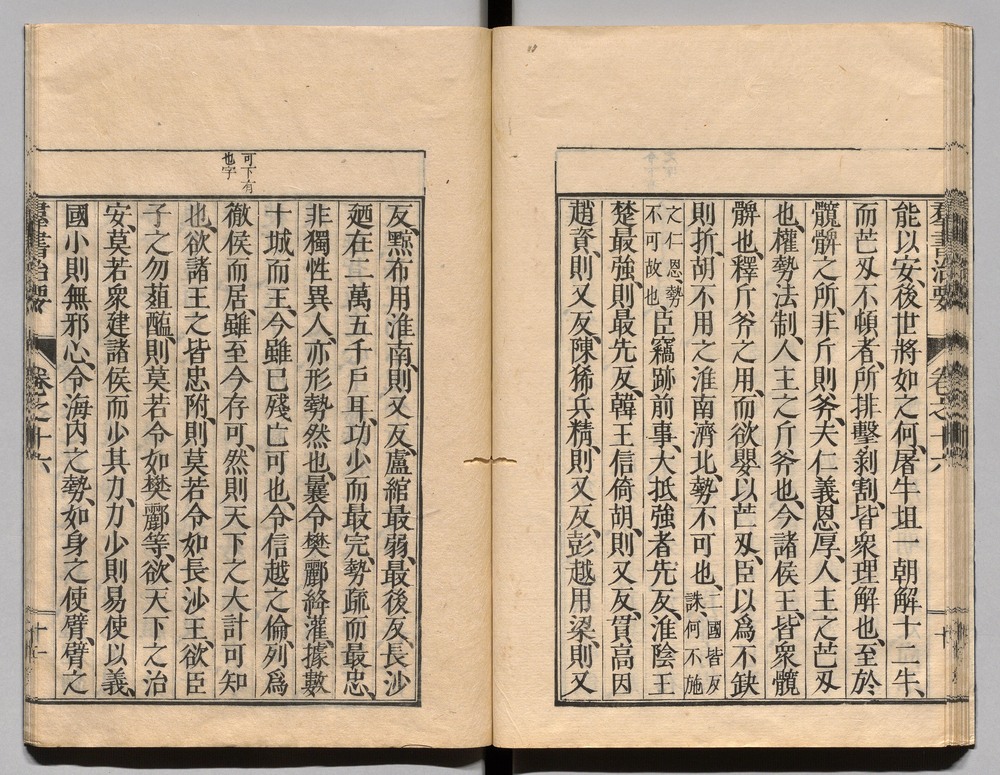 能以安、後世將如之何、屠牛坦一朝解十二牛、
而芒刄不頓者、所排擊剥割、皆衆理解也、至於
髖髀之所、非斤則斧、夫仁義恩厚、人主之芒刄
也、權勢法制、人主之斤斧也、今諸侯王、皆衆髖
髀也、釋斤斧之用、而欲嬰以芒刄、臣以爲不缺
則折、胡不用之淮南濟北、勢不可也、二國皆反誅、何不施
之仁恩勢不可故也、臣竊跡前事、大抵強者先反、淮陰王
楚最強、則最先反、韓王信倚胡、則又反、貫高因
趙資、則又反、陳狶兵精、則又反、彭越用梁、則又
反、黥布用淮南、則又反、盧綰最弱、最後反、長沙
廼在二萬五千戶耳、功少而最完、勢疏而最忠、
非獨性異人、亦形勢然也、曩令樊酈絳灌、據數
十城而王、今雖已殘亡可也、令信越之倫、列爲
徹侯而居、雖至今存可、然則天下之大計可知
也、欲諸王之皆忠附、則莫若令如長沙王、欲臣
子之勿葅醢、則莫若令如樊酈等、欲天下之治
安、莫若衆建諸侯而少其力、力少則易使以義、
國小則無邪心、令海內之勢、如身之使臂、臂之
可下有
也字
羣書治要 卷之十六 十
羣書治要 卷之十六 十一